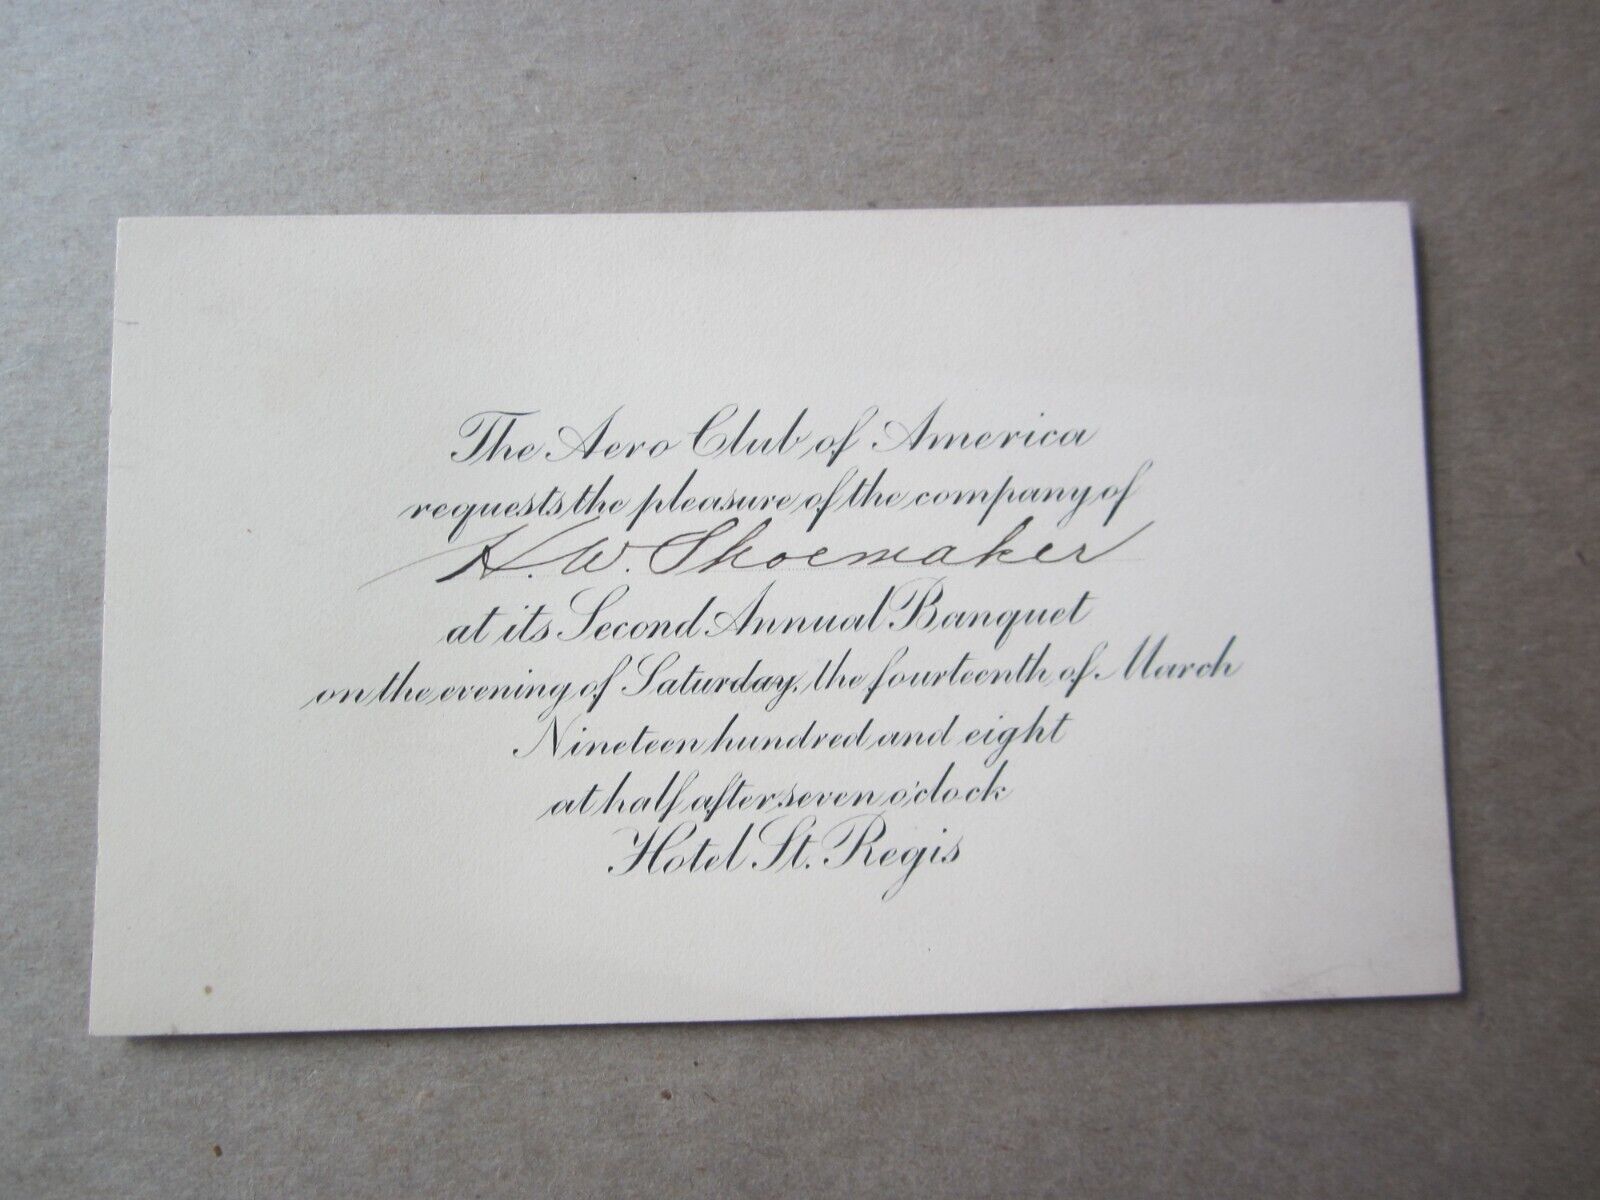 The Aero Club of America
requests the pleasure of the company of
H. W. Shoemaker
at its Second Annual Banquet
on the evening of Saturday, the fourteenth of March
Nineteen hundred and eight
at half after seven o'clock
Hotel St. Regis